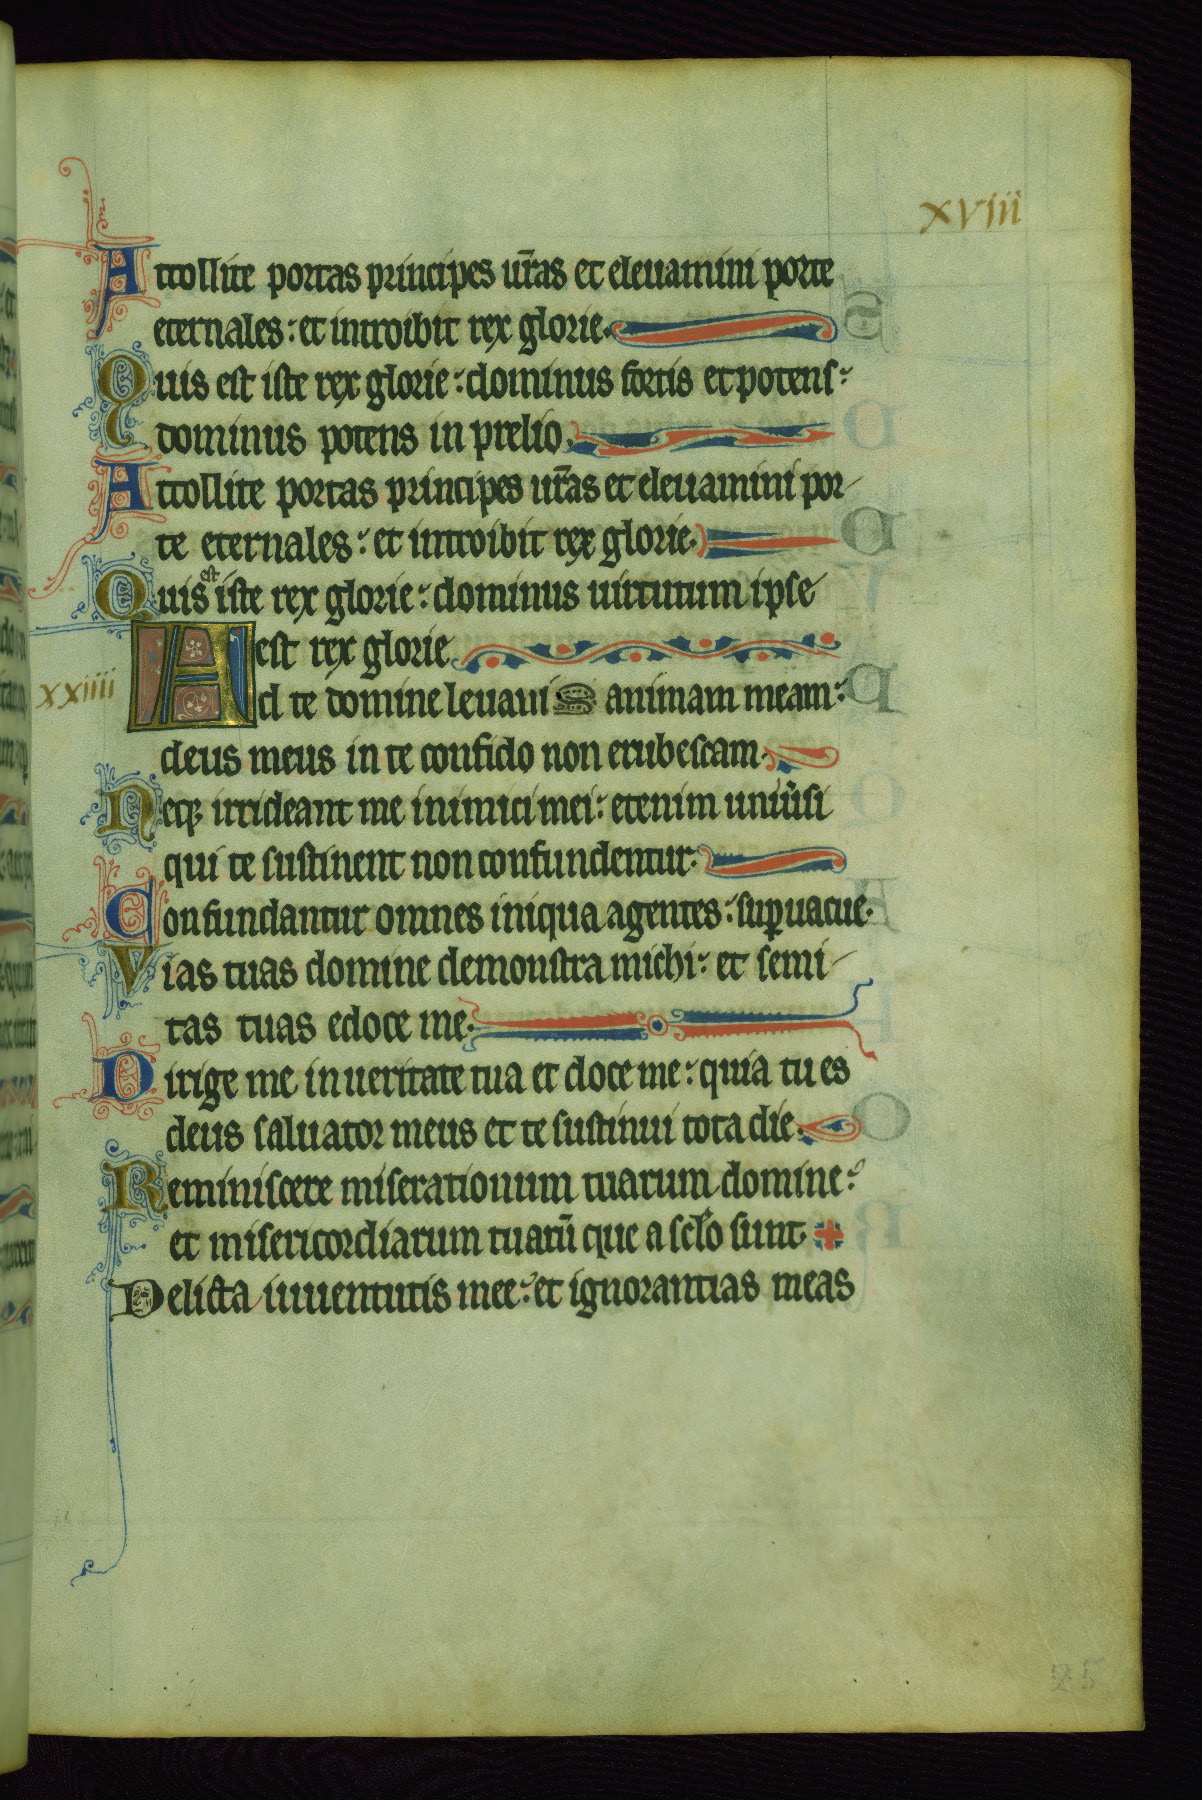 xviii
Attollite portas principes ur̃as et eleuamini porte
eternales: et introibit rex glorie.
Quis est iste rex glorie: dominus fortis et potens:
dominus potens in prelio.
Attollite portas principes ur̃as et eleuamini por-
te eternales: et introibit rex glorie.
Quis est iste rex glorie: dominus uirtutum ipse
est rex glorie
xxiiii
Ad te domine leuaui animam meam:
deus meus in te confido non erubescam.
Neqꝫ irrideant me inimici mei: etenim uniũsi
qui te sustinent non confundentur.
Confundantur omnes iniqua agentes: suꝑuacue.
Vias tuas domine demonstra michi: et semi-
tas tuas edoce me.
Dirige me in ueritate tua et doce me: quia tu es
deus saluator meus et te sustinui tota die.
Reminiscere miserationum tuarum domine:
et misericordiarum tuarũ que a sclõ sunt.
Delicta iuuentutis mee: et ignorantias meas
25